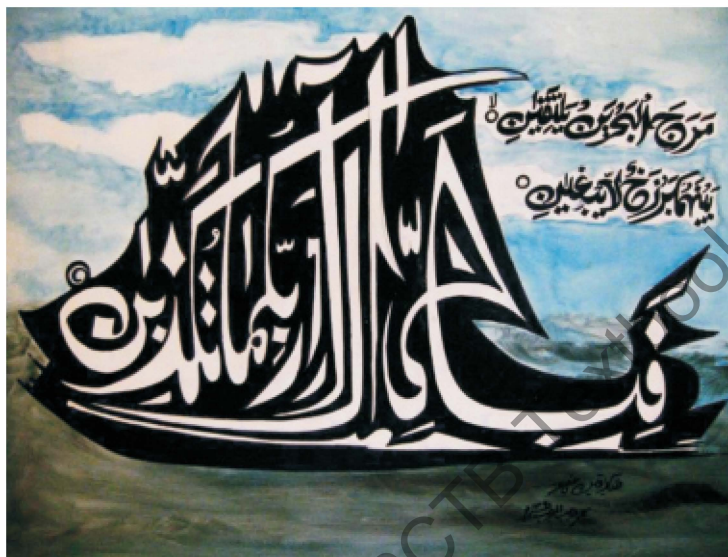 مَرَجَ الْبَحْرَيْنِ يَلْتَقِيٰنِ
بَيْنَهُمَا بَرْزَخٌ لَّا يَبْغِيٰنِ
فَبِاَيِّ اٰلَآءِ رَبِّكُمَا تُكَذِّبٰنِ
PCTB Textbook